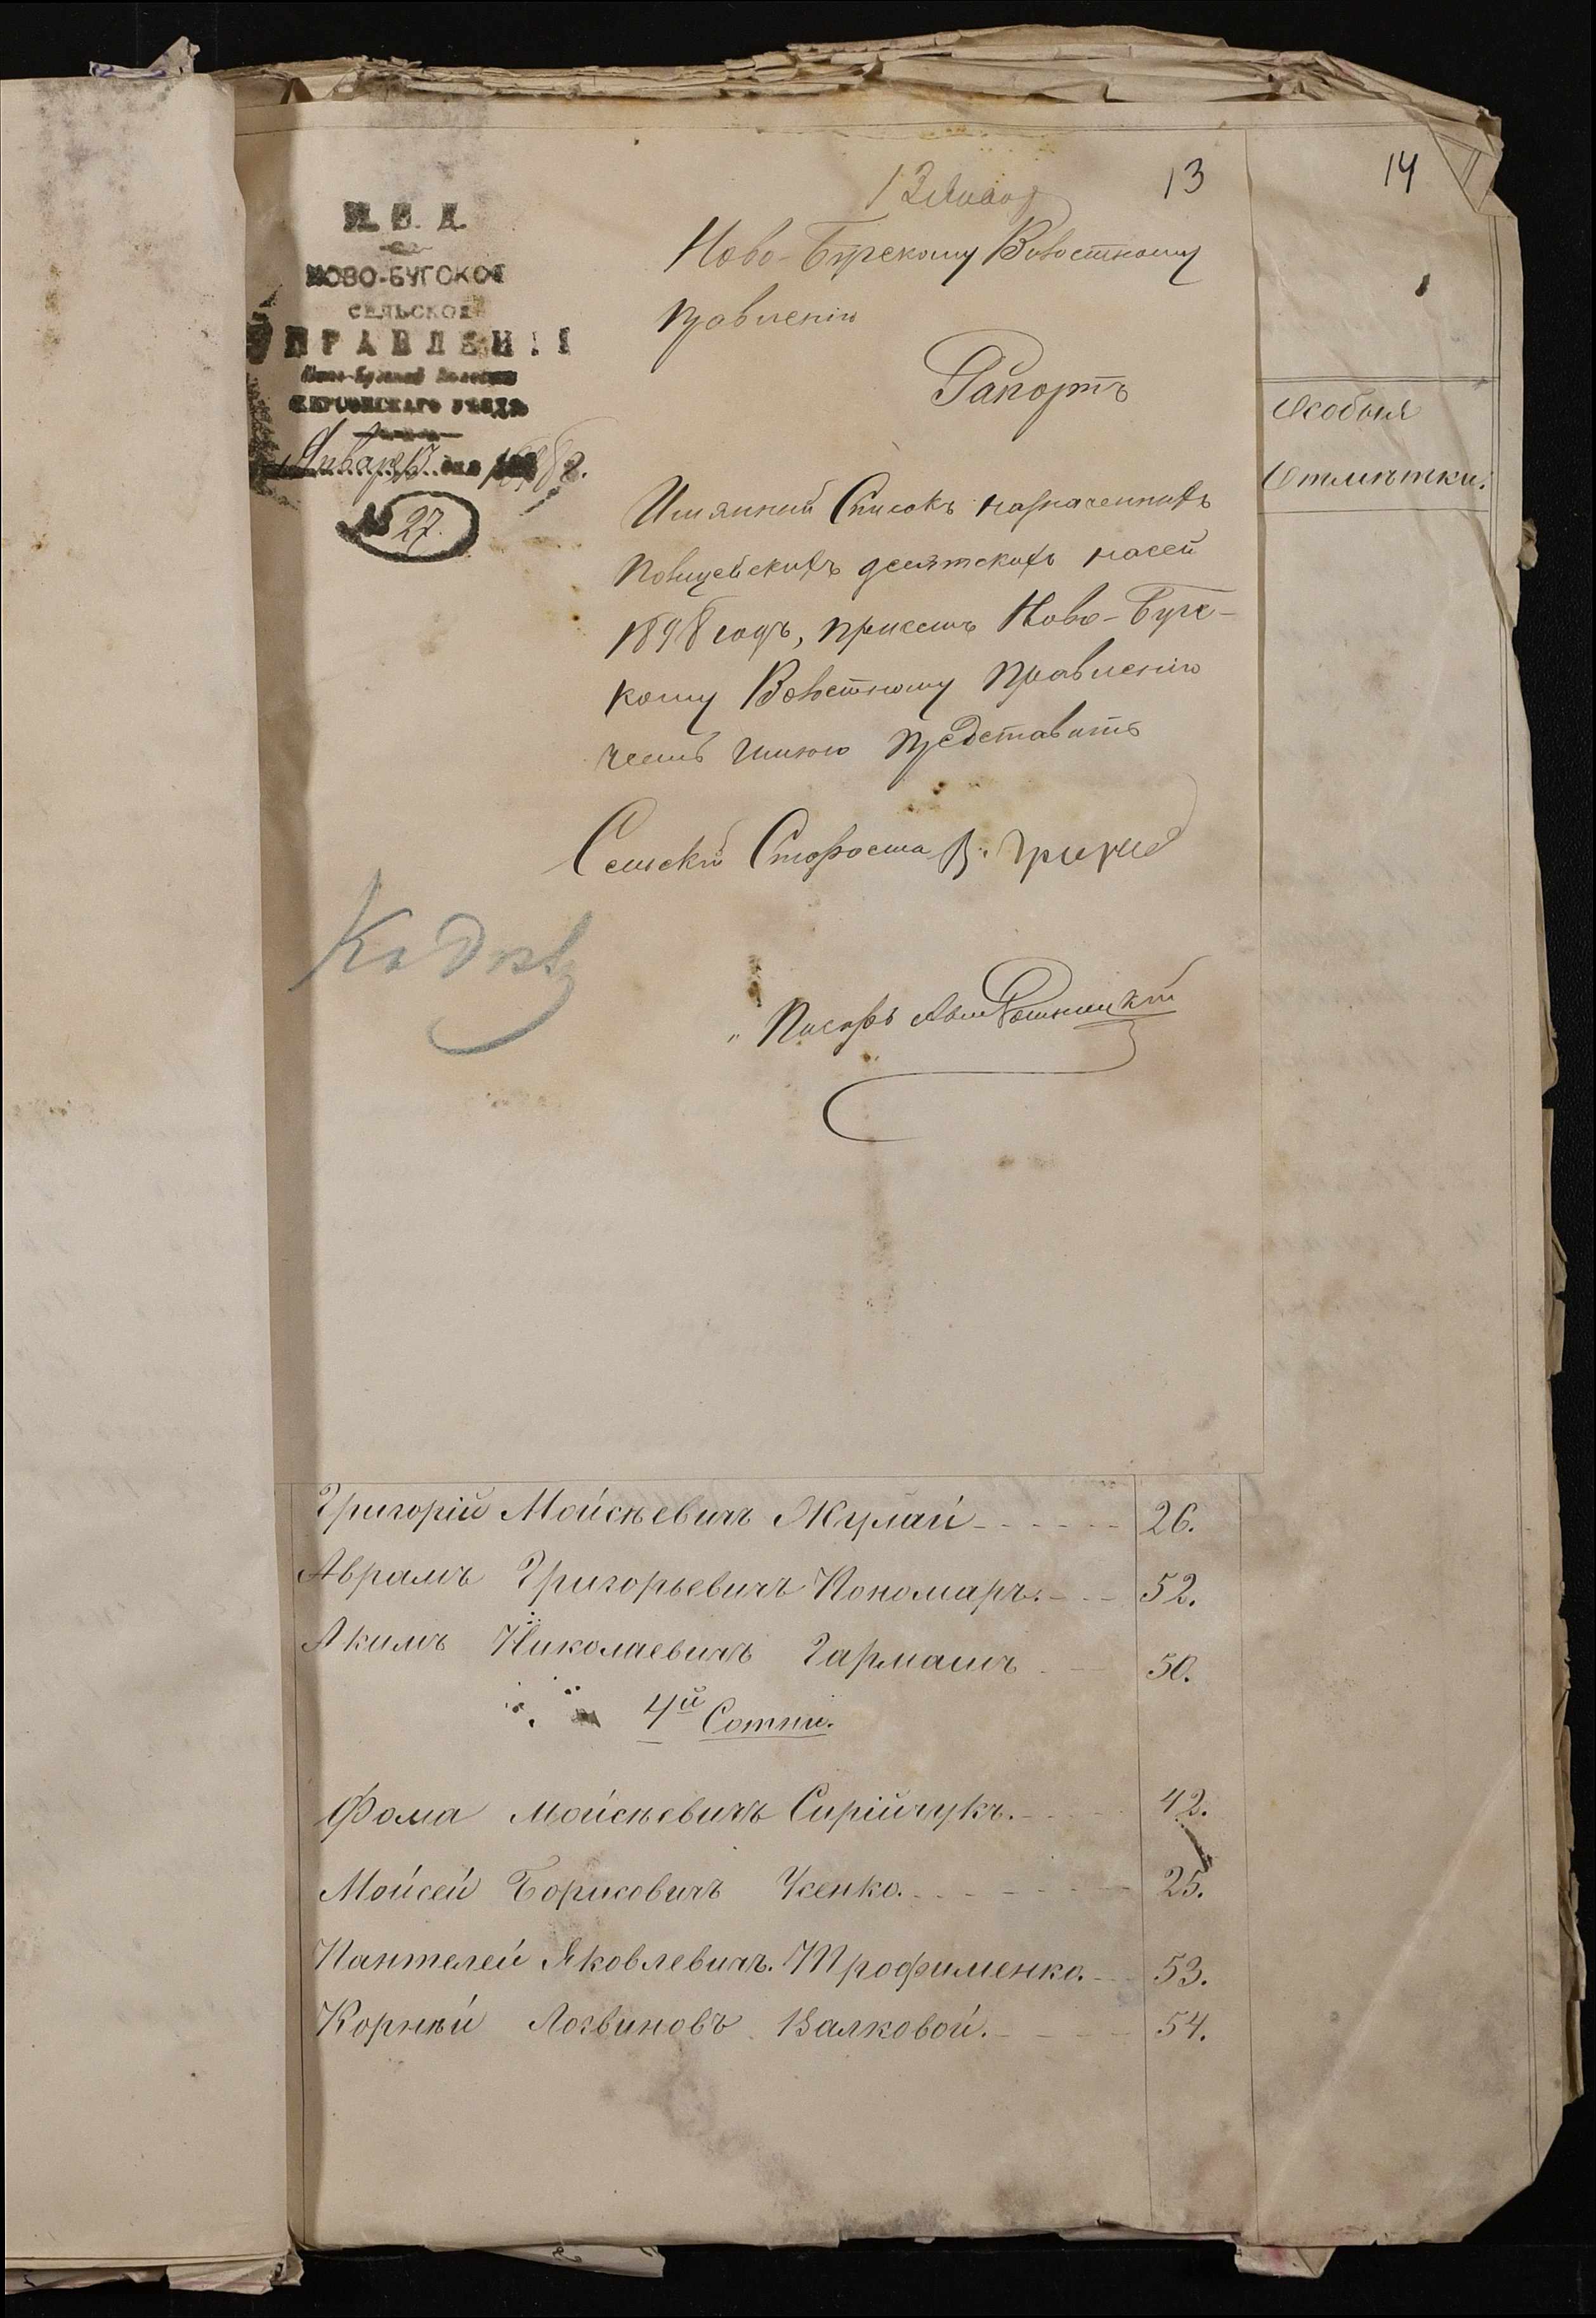 13
14
13 Января
М. В. Д.
НОВО-БУГСКОЕ
СЕЛЬСКОЕ
УПРАВЛЕНІЕ
Ново-Бугской Волости
ХЕРСОНСКАГО УѢЗДА
Января 13 дня 1898 г.
№ 27.
Ново-Бугскому Волостному
Правленію
Рапортъ
Имянный Списокъ назначенныхъ
Полицейскихъ десятскихъ на сей
1898 годъ, присемъ Ново-Бугс-
кому Волостному Правленію
честь имѣю представить
Сельскій Староста В.
Писарь
Къ дѣлу
Особыя
Отмѣтки.
Григорій Мойсѣевичъ Жулай 26.
Аврамъ Григорьевичъ Пономарь. 52.
Акимъ Николаевичъ Гармашъ 50.
4й Сотни.
Фома Мойсѣевичъ Сирійчукъ. 42.
Мойсей Борисовичъ Усенко. 25.
Пантелей Яковлевичъ Трофименко. 53.
Корнѣй Логвиновъ Валковой. 54.